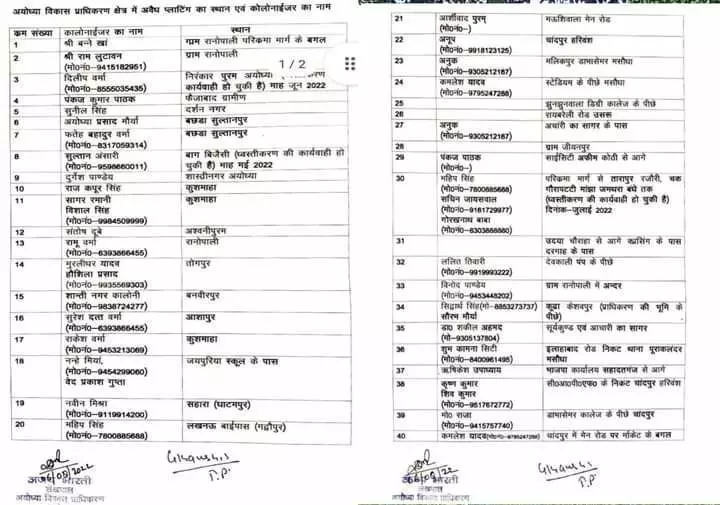 अयोध्या विकास प्राधिकरण क्षेत्र में अवैध प्लाटिंग का स्थान एवं कोलोनाईजर का नाम
कम संख्या कालोनाईजर का नाम स्थान
1 श्री बन्ने खां ग्राम रानोपाली परिक्रमा मार्ग के बगल
2 श्री राम लुटावन ग्राम रानोपाली
(मो०नं०-9415182951)
1 / 2
3 दिलीप वर्मा निरंकार पुरम अयोध्या
(मो०नं०-8555035435) कार्यवाही हो चुकी है) माह जून 2022
4 पंकज कुमार पाठक फैजाबाद ग्रामीण
5 सुनील सिंह दर्शन नगर
6 अयोध्या प्रसाद मौर्या बछडा सुल्तानपुर
7 फतेह बहादुर वर्मा बछडा सुल्तानपुर
(मो०नं०-8317059314)
8 सुल्तान अंसारी बाग बिजैसी (ध्वस्तीकरण की कार्यवाही हो
(मो०नं०-9598660011) चुकी है) माह मई 2022
9 दुर्गेश पाण्डेय शास्त्रीनगर अयोध्या
10 राज कपूर सिंह कुशमाहा
11 सागर रमानी कुशमाहा
विशाल सिंह
(मो०नं०-9984509999)
12 संतोष दूबे अश्वनीपुरम
13 रामू वर्मा रानोपाली
(मो०नं०-6393866455)
14 मुरलीधर यादव तोगपुर
हौशिला प्रसाद
(मो०नं०-9935569303)
15 शान्ती नगर कालोनी बनवीरपुर
(मो०नं०-9838724277)
16 सुरेश दत्त वर्मा आशापुर
(मो०नं०-6393866455)
17 राकेश वर्मा कुशमाहा
(मो०नं०-9453213069)
18 नन्हे मियां, जयपुरिया स्कूल के पास
(मो०नं०-9454299060)
वेद प्रकाश गुप्ता
19 नवीन मिश्रा सहारा (घाटमपुर)
(मो०नं०-9119914200)
20 महिप सिंह लखनऊ बाईपास (गद्दौपुर)
(मो०नं०-7800885688)
06/08/2022
भारती
लेखपाल
अयोध्या विकास प्राधिकरण
21 आर्शीवाद पुरम् मऊशिवाला मेन रोड
(मो०नं०-)
22 अनूप चांदपुर हरिवंश
(मो०नं०-9918123125)
23 अनुक मलिकपुर डाभासेमर मसौधा
(मो०नं०-9305212187)
24 कमलेश यादव स्टेडियम के पीछे मसौधा
(मो०नं०-9795247288)
25 झुनझुनवाला डिग्री कालेज के पीछे
26 रायबरेली रोड उसरू
27 अनुक अचारी का सागर के पास
(मो०नं०-9305212187)
28 ग्राम जीवनपुर
29 पंकज पाठक साईसिटी अफीम कोठी से आगे
(मो०नं०-)
30 महिप सिंह परिक्रमा मार्ग से तारापुर रजौरी, चक
(मो०नं०-7800885688) गौरापटटी मांझा जमथरा बंधे तक
सचिन जायसवाल (ध्वस्तीकरण की कार्यवाही हो चुकी है)
(मो०नं०-9161729977) दिनांक-जुलाई 2022
गोरखनाथ बाबा
(मो०नं०-6303888880)
31 उदया चौराहा से आगे क्रासिंग के पास
दरगाह के पास
32 ललित तिवारी देवकाली पंप के पीछे
(मो०नं०-9919993222)
33 विनोद पाण्डेय ग्राम रानोपाली में अन्दर
(मो०नं०-9453448202)
34 सिद्वार्थ सिंह(मो०-8853273737) कूढा केशवपुर (प्राधिकरण की भूमि के
सौरभ मौर्या पीछे)
35 डा० शकील अहमद सूर्यकुण्ड एवं आचारी का सागर
(मो०-9305137804)
36 शुभ कामना सिटी इलाहाबाद रोड निकट थाना पूराकलंदर
(मो०नं०-8400961495) मसौधा
37 ऋषिकेश उपाध्याय भाजपा कार्यालय सहादतगंज से आगे
38 कृष्ण कुमार सी०आ०पी०एफ० के निकट चांदपुर हरिवंश
शिव कुमार
(मो०नं०-9517672772)
39 मो० राजा डाभासेमर कालेज के पीछे चांदपुर
(मो०नं०-9415757740)
40 कमलेश यादव(मो०नं०-9795247288) चांदपुर में मेन रोड पर मॉर्केट के बगल
06/08/22
भारती
लेखपाल
अयोध्या विकास प्राधिकरण